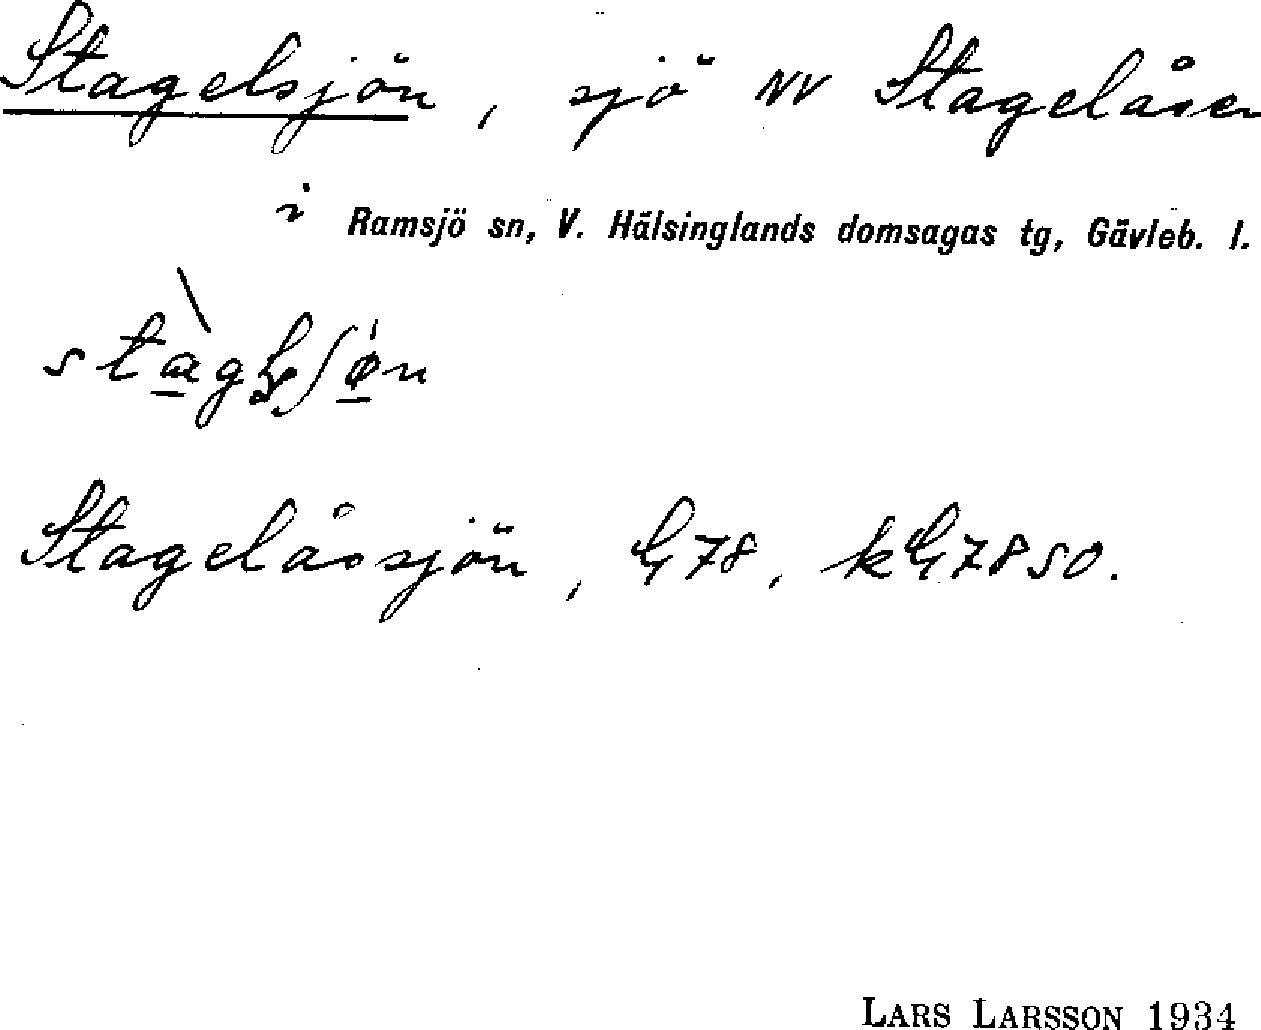 Stagelsjön, sjö NV Stagelåsen
i Ramsjö sn, V. Hälsinglands domsagas tg, Gävleb. l.
Stagelåssjön, G78, kG7850.
LARS LARSSON 1934